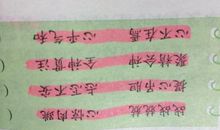 心惊肉跳 战战兢兢
忐忑不安 提心吊胆
全神贯注 聚精会神
心平气和 心不在焉